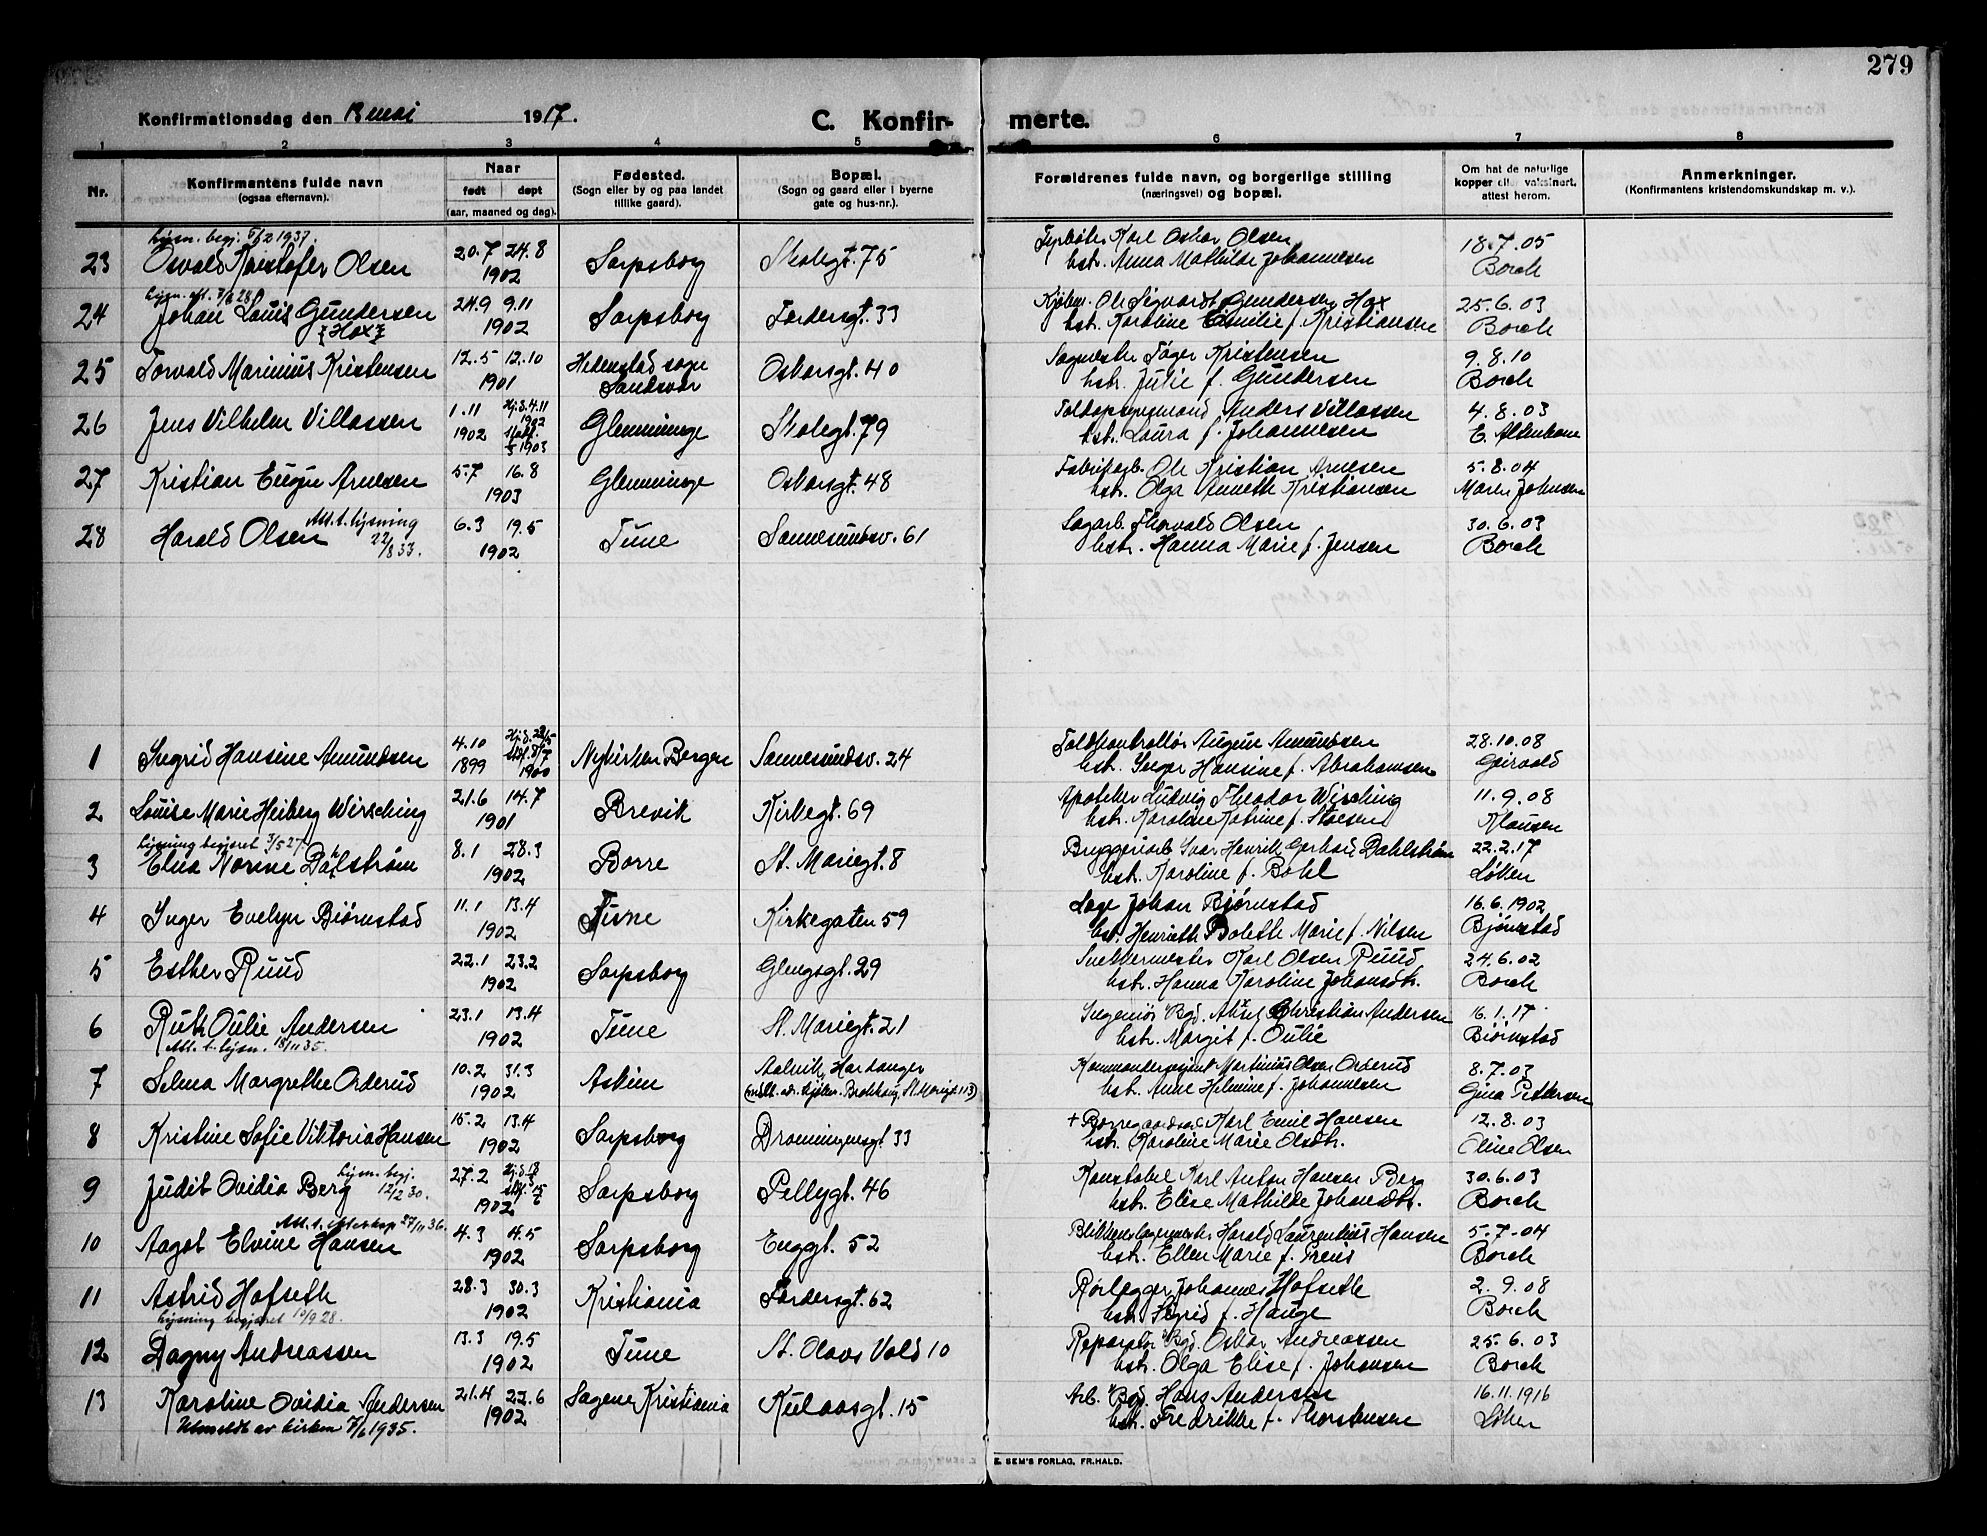 279
Konfirmationsdag den 13 mai 1917.
C. Konfirmerte.
1 2 3 4 5 6 7 8
Nr.
Konfirmantens fulde navn
(ogsaa efternavn).
Naar
født døpt
(aar, maaned og dag).
Fødested.
(Sogn eller by og paa landet
tillike gaard).
Bopæl.
(Sogn og gaard eller i byerne
gate og hus-nr.).
Forældrenes fulde navn, og borgerlige stilling
(næringsvei) og bopæl.
Om hat de naturlige
kopper eller vaksinert,
attest herom.
Anmerkninger.
(Konfirmantens kristendomskundskap m. v.).
Lysn. begj. 5/2 1937.
23 Osvald Kristofer Olsen 20.7 24.8 1902 Sarpsborg Skolegt. 75 Fyrbøter Karl Oskar Olsen 18.7.05
hstr. Anna Mathilde Johannesen Borch
24 Johan Louis Gundersen 24.9 9.11 1902 Sarpsborg Fordersgt. 33 Ole Sigvardt Gundersen Hox 25.6.03
{Hox} hstr. Karoline Emilie f. Kristiansen Borch
25 Torvald Marinius Kristensen 12.5 12.10 1901 Hedenstad sogn Oskarsgt. 40 Sagmester Tøger Kristensen 9.8.10
Sandsvær hstr. Julie f. Gundersen Borch
26 Jens Vilhelm Villassen 1.11 1902 Hj.d. 4.11 1902 Stadf. 1903 Glemminge Skolegt. 79 Toldopsynsmand Anders Villassen 4.8.03
hstr. Laura f. Johannesen E.
27 Kristian Eugen Arnesen 5.7 16.8 1903 Glemminge Oskarsgt. 48 Fabrikarb. Ole Kristian Arnesen 5.8.04
hstr. Olga Annette Kristiansen Maren Johnsen
28 Harald Olsen Att. t. lysning 22/8 33. 6.3 19.5 1902 Tune Sannesundsv. 61 Sagarb. Thorvald Olsen 30.6.03
hstr. Hanna Marie f. Jensen Borch
1 Ingrid Hansine Amundsen 4.10 1899 Hj.d. 28/5 Stdf. 8/7 1900 Nykirken Bergen Sannesundsv. 24 Toldkontrollør August Amundsen 28.10.08
hstr. Inger Hansine f. Abrahamsen Geirvald
2 Louise Marie Heiberg Wirsching 21.6 14.7 1901 Brevik Kirkegt. 69 Apoteker Ludvig Theodor Wirsching 11.9.08
hstr. Karoline Katrine f. Klausen
Lysning begjæret 3/5 27.
3 Elna Norine Dahlstrøm 8.1 28.3 1902 Borre St. Mariegt. 8 Bryggeriarb. Ivar Henrik Gerhard Dahlstrøm 22.2.17
hstr. Karoline f. Bohl Løken
4 Inger Evelyn Bjørnstad 11.1 13.4 1902 Tune Kirkegaten 59 Læge Johan Bjørnstad 16.6.1902
hstr. Henriette Bolette Marie f. Nilsen Bjørnstad
5 Esther Ruud 22.1 23.2 1902 Sarpsborg Glengsgt. 29 Snekkermester Karl Olsen Ruud 24.6.02
hstr. Hanna Karoline Johansdtr. Borch
6 Ruth Oulie Andersen 23.1 13.4 1902 Tune St. Mariegt. 21 Ingeniør v/Bgd. Christian Andersen 16.1.17
Att. t. lysn. 18/11 35. hstr. Margit f. Oulie Bjørnstad
7 Selma Margrethe Orderud 10.2 31.3 1902 Askim Aalvik, Hardanger Martinius Olsen Orderud 8.7.03
St. Mariegt. 113) hstr. Anne Helmine f. Johannesen Gina Pettersen
8 Kristine Sofie Viktoria Hansen 15.2 13.4 1902 Sarpsborg Dronningensgt. 33 + Borregaardsarb. Karl Emil Hansen 12.8.03
hstr. Karoline Marie Olsdtr. Oline Olsen
9 Judit Ovidia Berg Lysn. begj. 12/2 30. 27.2 1902 Sarpsborg Pellygt. 46 Konstabel Karl Anton Hansen Berg 30.6.03
hstr. Elise Mathilde Johansdtr. Borch
Att. t. ekteskap 27/11 36.
10 Aagot Elvine Hansen 4.3 4.5 1902 Sarpsborg Enggt. 52 Blikkenslagermester Harald Laurentius Hansen 5.7.04
hstr. Ellen Marie f. Preus Borch
11 Astrid Hofseth 28.3 30.3 1902 Kristiania Fordersgt. 62 Rørlægger Johannes Hofseth 2.9.08
Lysning begjæret 10/9 28. hstr. Sigrid f. Hauge Borch
12 Dagny Andreassen 13.3 19.5 1902 Tune St. Olavs Vold 10 Reparatør v/Bgd. Oskar Andreassen 25.6.03
hstr. Olga Elise f. Johansen Borch
13 Karoline Ovidia Andersen 21.4 22.6 1902 Sagene Kristiania Kulaasgt. 15 Arb. v/Bgd. Hans Andersen 16.11.1916
Utmeldt av kirken 7/6 1935. hstr. Fredrikke f. Thorstensen Løken
E. SEM'S FORLAG, FR.HALD.